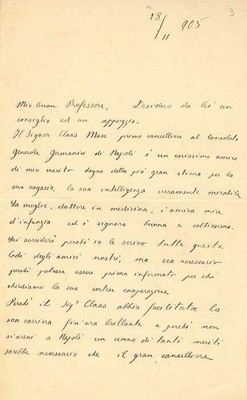 3
28/11 905
Mio buon Professore, Desidero da lei un
consiglio ed un appoggio.
Il Signor Claas Max primo cancelliere al Consolato
Generale Germanico di Napoli è un carissimo amico
di mio marito degno della più gran stima per la
sua sagacia, la sua intelligenza veramente mirabile
La moglie, dottore in medicina, è amica mia
d'infanzia ed è signora buona e coltissima.
Lei sorriderà perchè io le scrivo tutte queste
lodi degli amici nostri, ma era necessario
perchè potesse essere prima informato per chi
chiediamo la sua cortese cooperazione
Perchè il Sigr Claas abbia facilitata la
sua carriera finora brillante e perchè non
si areni a Napoli un uomo di tanti meriti
sarebbe necessario che il gran cancelliere